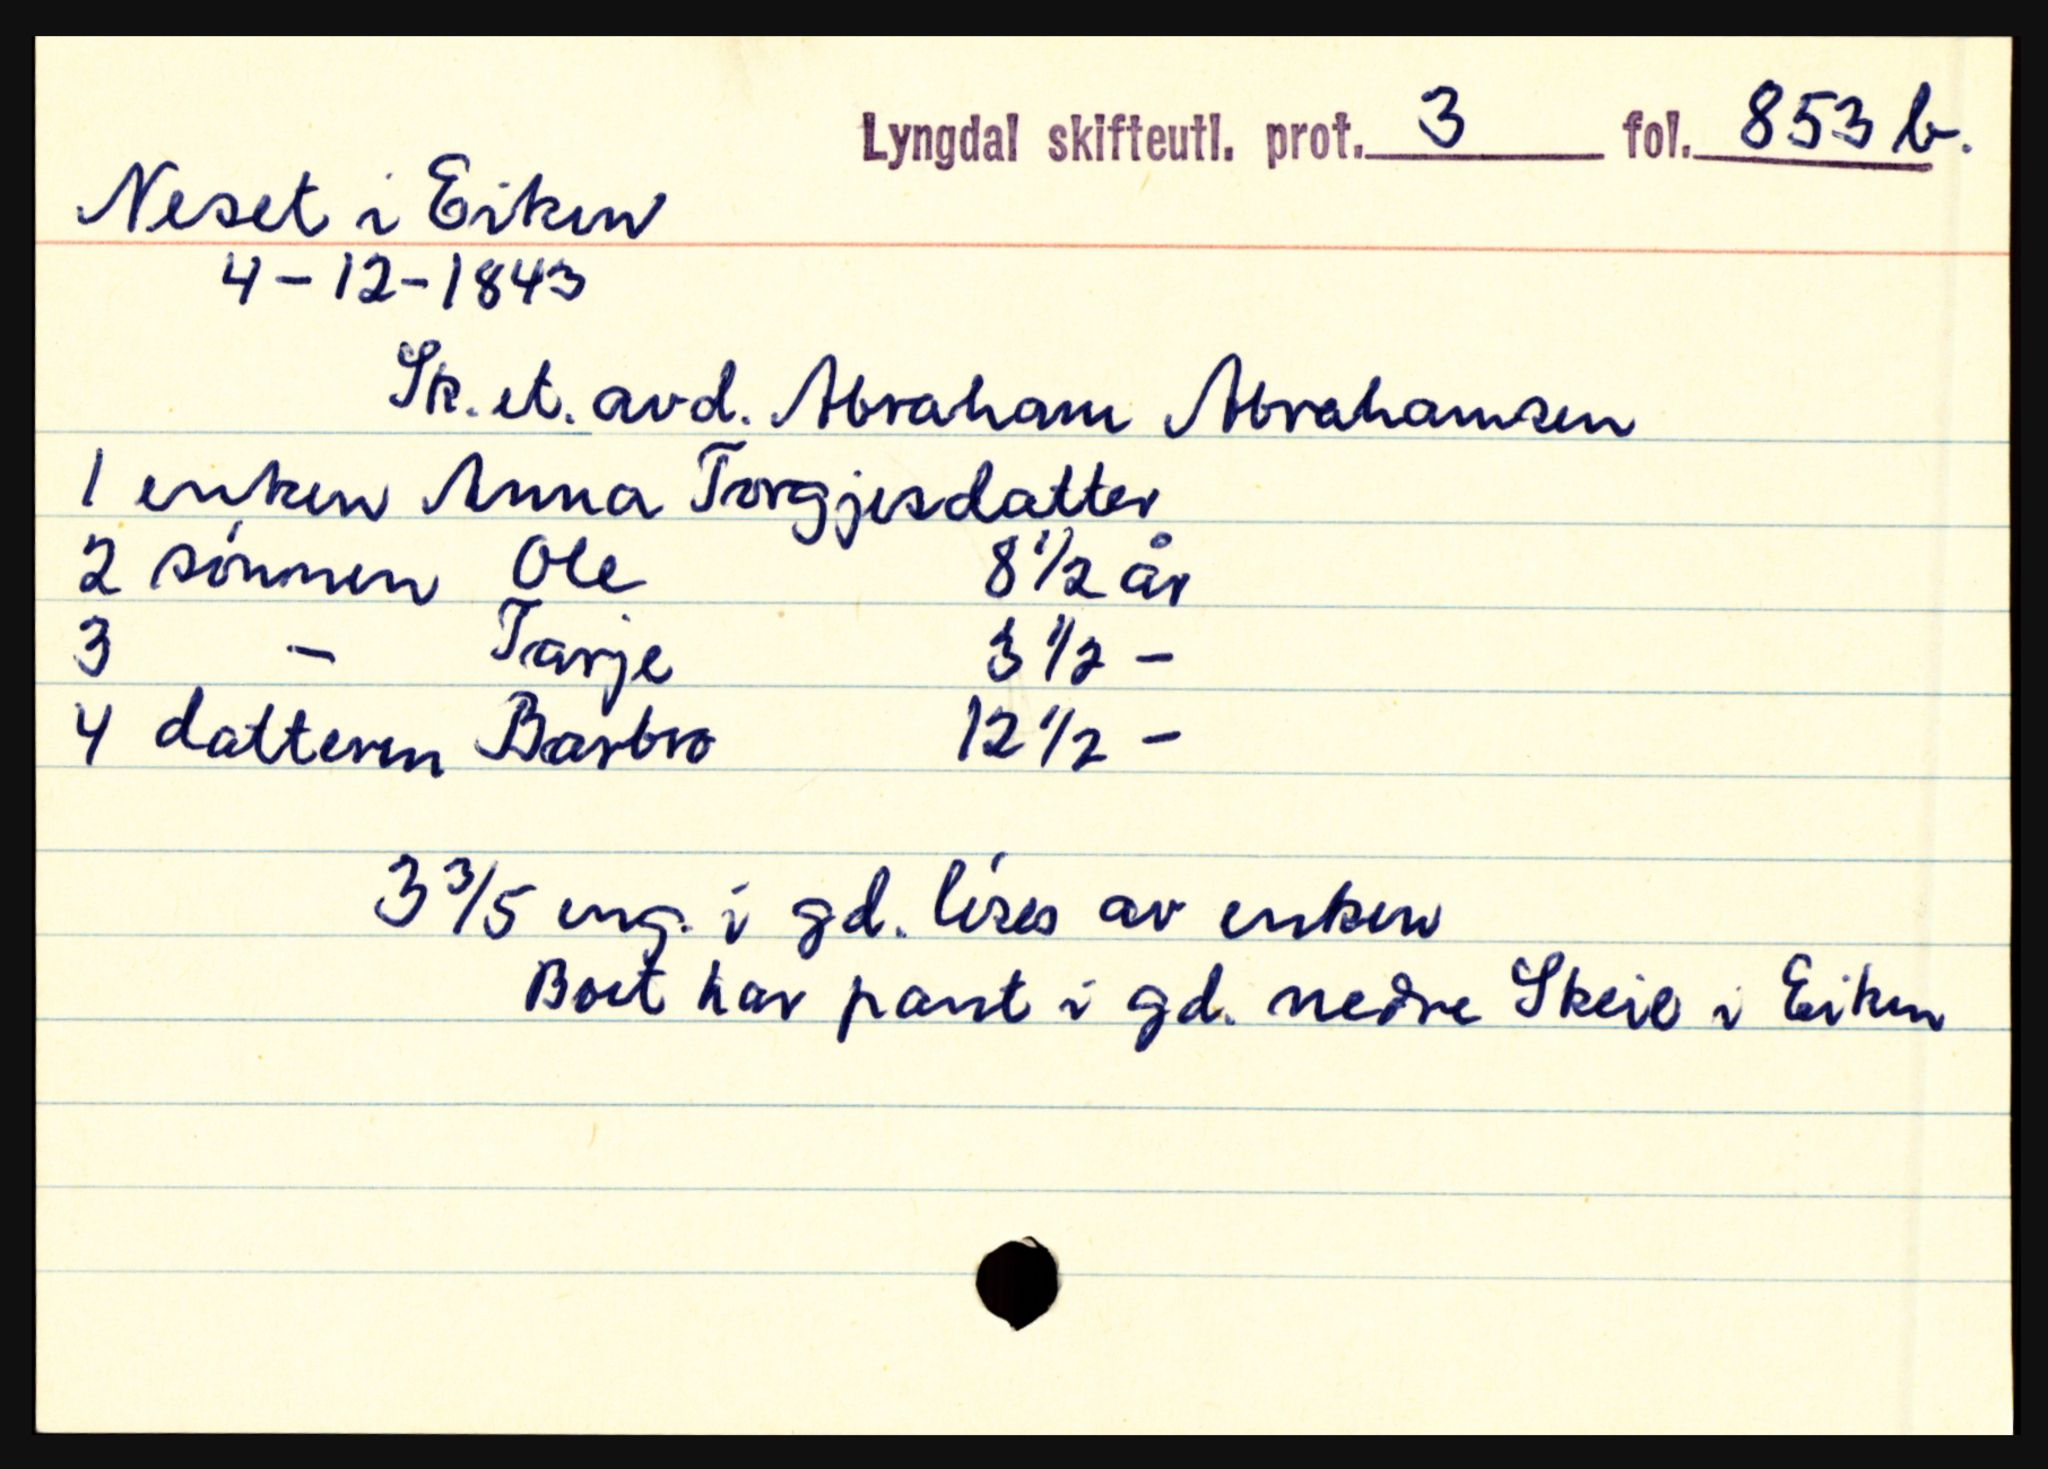 Lyngdal skifteutl. prot. 3 fol. 853 b.
Neset i Eiken
4-12-1843
Sk. et. avd. Abraham Abrahamsen
1 enken Anna Torgjesdatter
2 sónnen Ole 8 1/2 år
3 - Tarje 3 1/2 -
4 datteren Barbro 12 1/2 -
3 3/5 eng. i gd. lóses av enken
Boet har pant i gd. nedre Skeie i Eiken